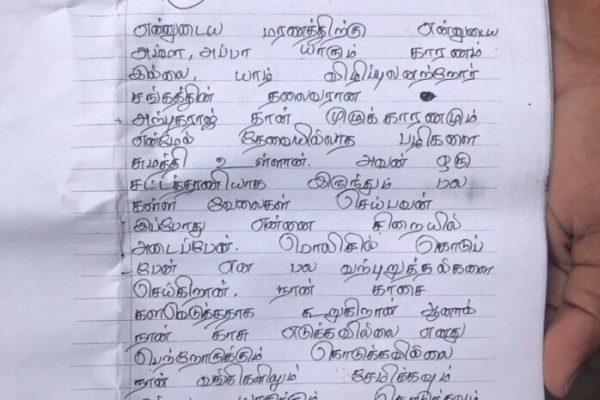 என்னுடைய மரணத்திற்கு என்னுடைய
அம்மா, அப்பா யாரும் காரணம்
இல்லை, யாம் விழிப்புலனற்றோர்
சங்கத்தின் தலைவரான
அற்புதராஜ் தான் முழுக்காரணமும்
என்மேல் தேவையில்லாத பழிகளை
சுமத்தி உள்ளான். அவன் ஒரு
சட்டத்தரணியாக இருந்தும் பல
கள்ள வேலைகள் செய்பவன்
இப்போது என்னை சிறையில்
அடைப்பேன். பொலிசில் கொடுப்
பேன் என பல வற்புறுத்தல்களை
செய்கிறான். நான் காசை
களவெடுத்ததாக கூறுகிறான் ஆனால்
நான் காசு எடுக்கவில்லை எனது
பெற்றோருக்கும் கொடுக்கவில்லை
நான் வங்கிகளிலும் சேமிக்கவும்